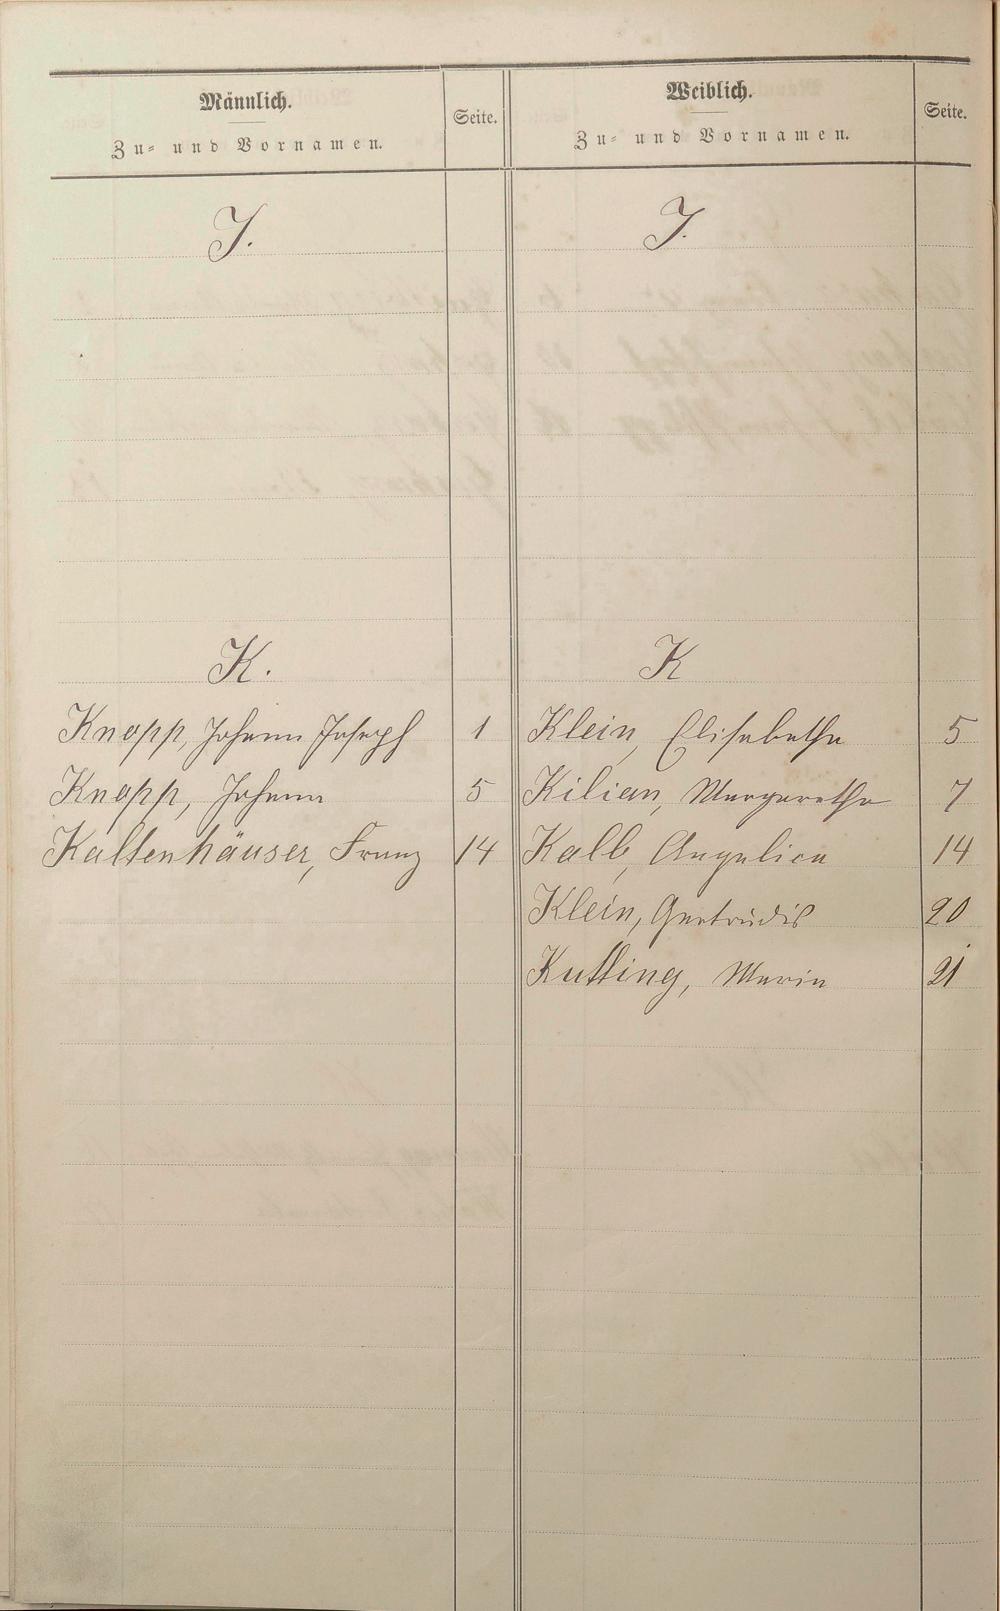 Männlich.
Zu- und Vornamen.
Seite.
Weiblich.
Zu- und Vornamen.
Seite.
J.
J.
K.
K
Knopp, Johann Joseph 1
Klein, Elisabetha 5
Knopp, Johann 5
Kilian, Margaretha 7
Kaltenhäuser, Franz 14
Kalb, Angelica 14
Klein, Gertrudis 20
Kutting, Maria 21